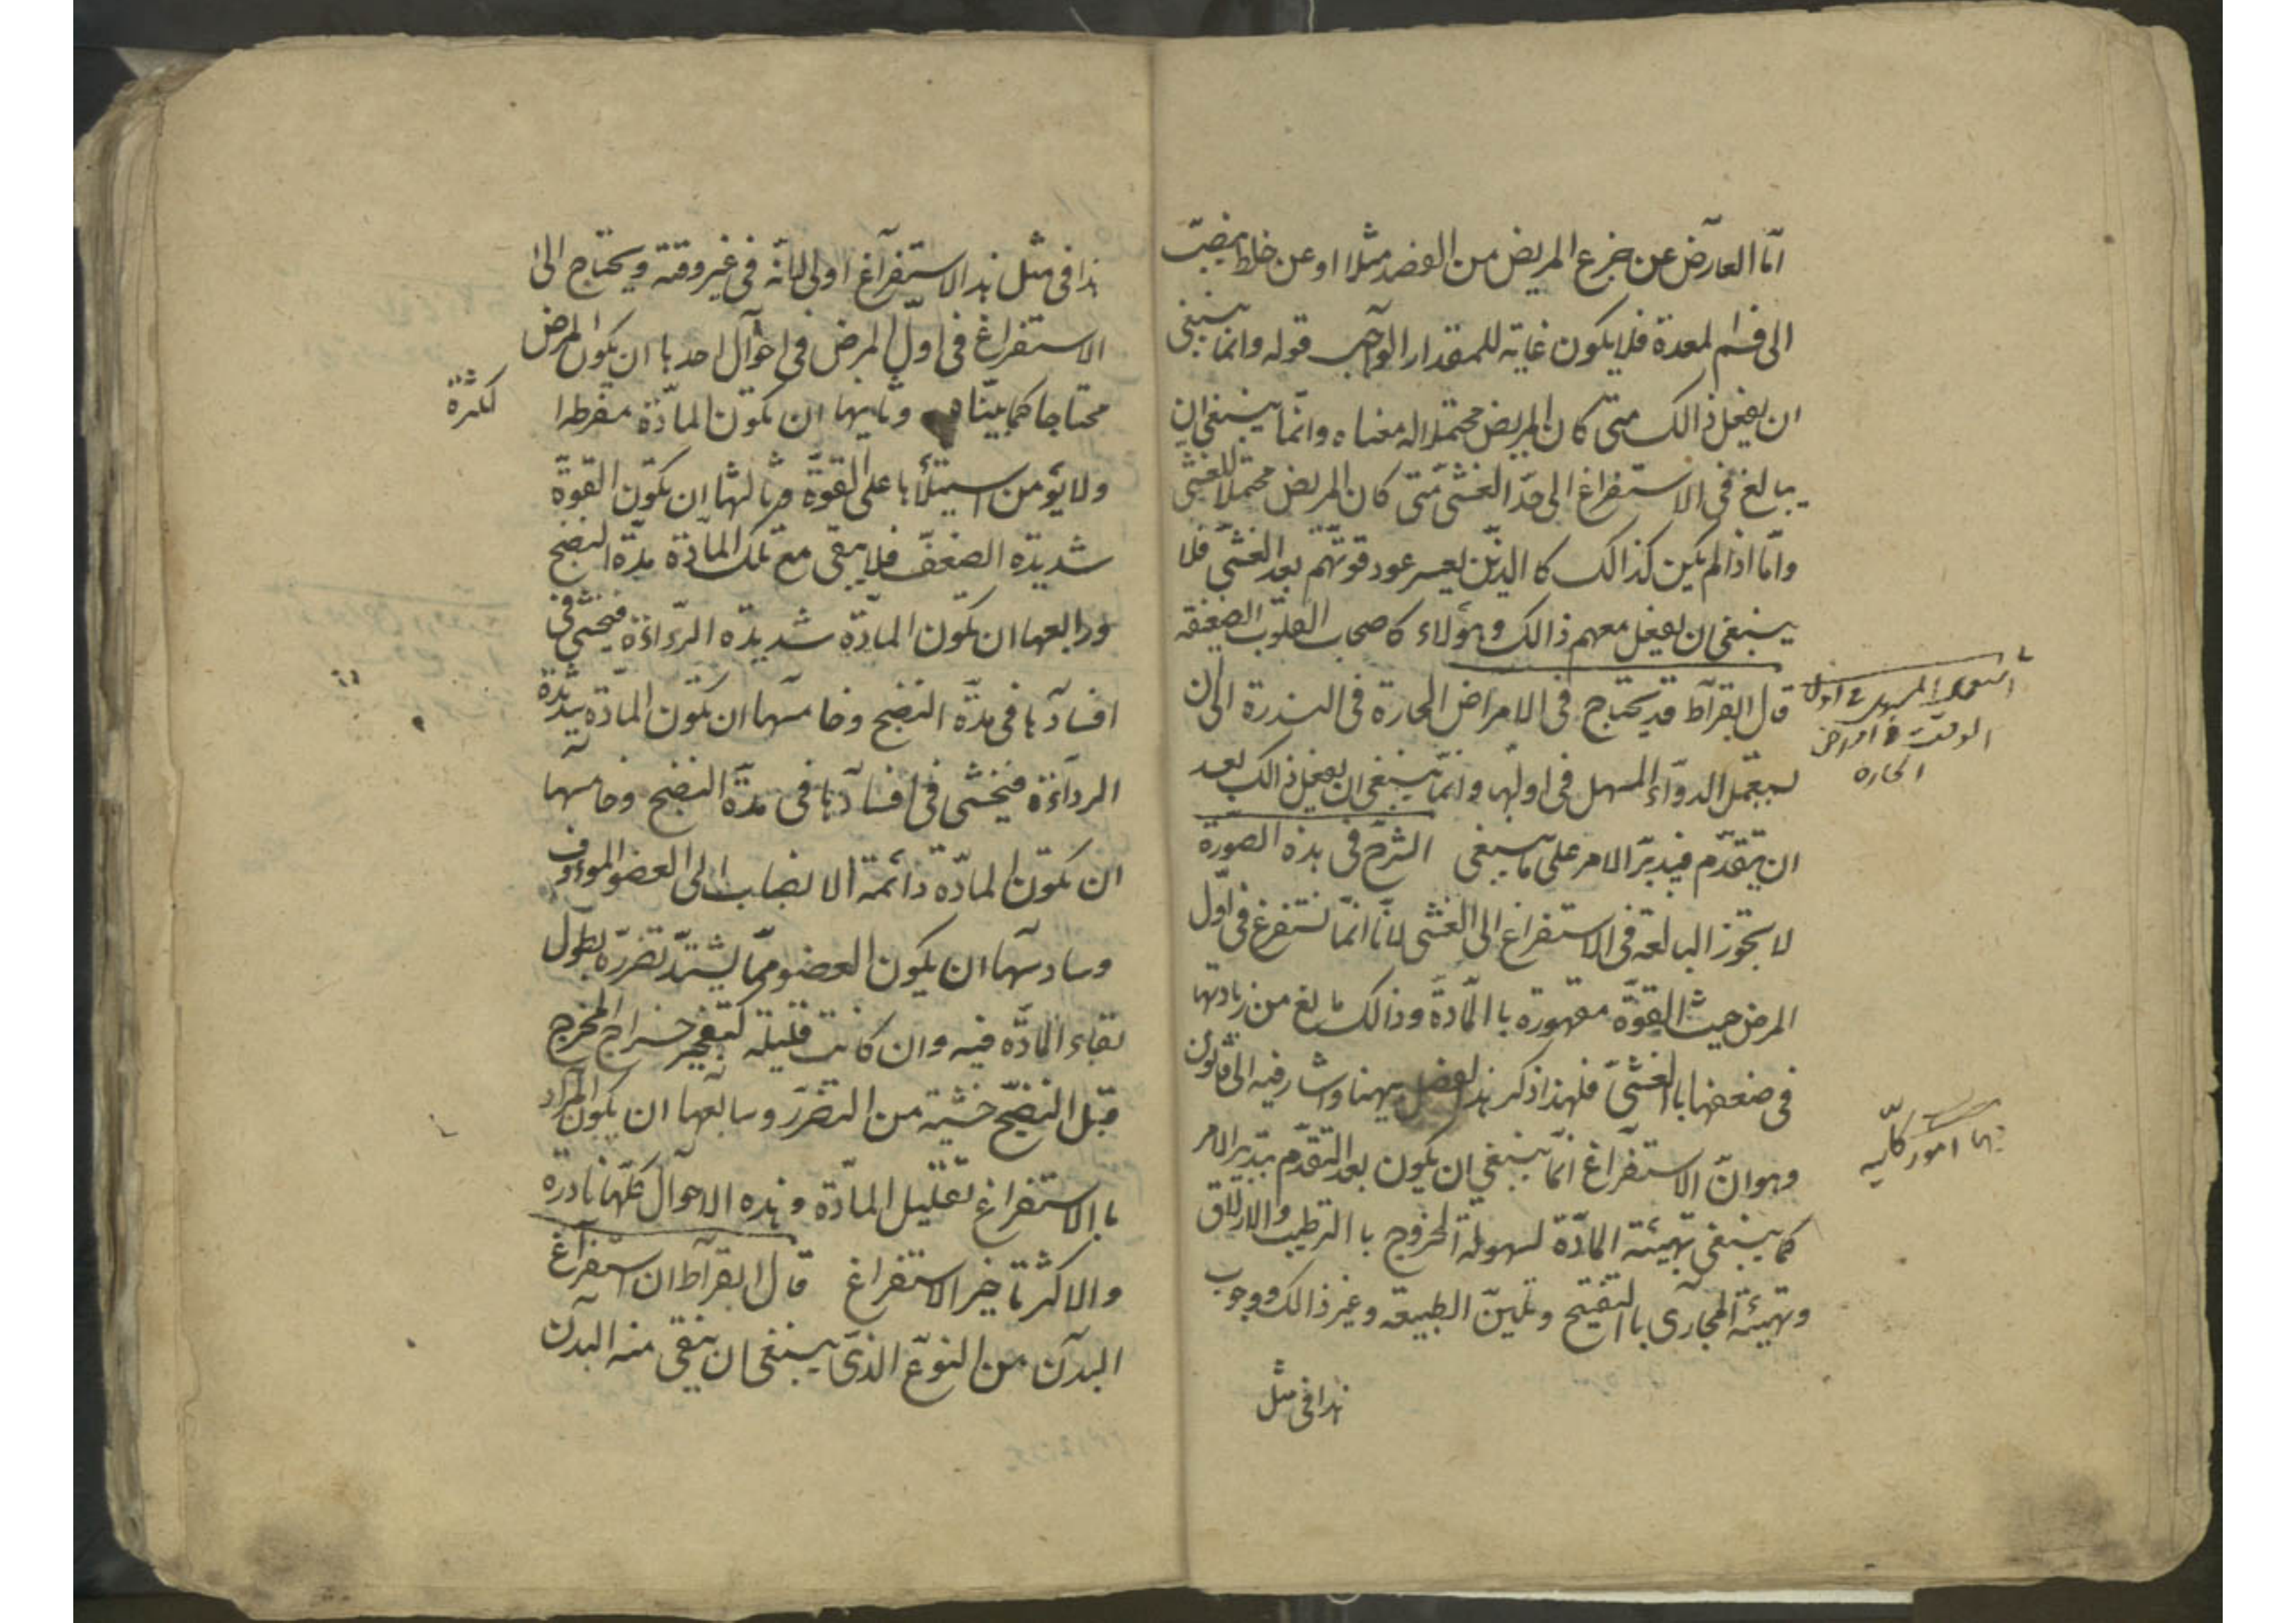 اما العارض عن جزع المريض من الفصد مثلا او عن خلط ينصب
الى فم المعدة فلا يكون غاية للمقدار الواجب قوله وانما ينبغى
ان يفعل ذالك متى كان المريض محتملا له معناه وانما ينبغى ان
يبالغ فى الاستفراغ الى حد الغشى متى كان المريض محتملا للغشى
واما اذا لم يكن كذالك كا الذين يعسر عود قوتهم بعد الغشى فلا
ينبغى ان يفعل معهم ذالك وهؤلاء كاصحاب القلوب الضعفة
قال ابقراط قد يحتاج فى الامراض الحارة فى الندرة الى ان
يستعمل الدواء المسهل فى اولها وانما ينبغى ان يفعل ذالك بعد
ان يتقدم فيدبر الامر على ما ينبغى الشرح فى هذه الصورة
لا يجوز المبالغة فى الاستفراغ الى الغشى لانا انما نستفرغ فى اول
المرض حيث القوة مقهورة با المادة وذالك مانع من زيادتها
فى ضعفها با الغشى فلهذا ذكر هذا الفصل ههنا واشار فيه الى قانون
وهو ان الاستفراغ انما ينبغى ان يكون بعد التقدم بتدبير الامر
كما ينبغى تهيئة المادة لسهولة الخروج با الترطيب والازلاق
وتهيئة المجارى با التفتيح وتليين الطبيعة وغير ذالك ووجوب
هذا فى مثل
استعمال المسهل فى اول
الوقت امراض
الحارة
امور كلية
هذا فى مثل هذا الاستفراغ اولى لانه فى غير وقته ويحتاج الى
الاستفراغ فى اول المرض فى احوال احدها ان يكون المرض
محتاجا كما بيناه وثانيها ان تكون المادة مفرطة
لكثرة
ولا يؤمن استيلاؤها على القوة وثالثها ان تكون القوة
شديدة الضعف فلا يبقى مع تلك المادة مدة النضج
ورابعها ان تكون المادة شديدة الرداءة فيخشى فى
افسادها فى مدة النضج وخامسها ان تكون المادة شديدة
الرداءة فيخشى فى افسادها فى مدة النضج وخامسها
ان تكون المادة دائمة الانصباب الى العضو المؤوف
وسادسها ان يكون العضو مما يشتد تضرره بطول
بقاء المادة فيه وان كانت قليلة كتفجير خراج المخرج
قبل النضج خشية من التضرر وسابعها ان يكون المراد
با الاستفراغ تقليل المادة وهذه الاحوال كلها نادرة
والاكثر تاخير الاستفراغ قال ابقراط ان استفراغ
البدن من النوع الذى ينبغى ان ينقى منه البدن